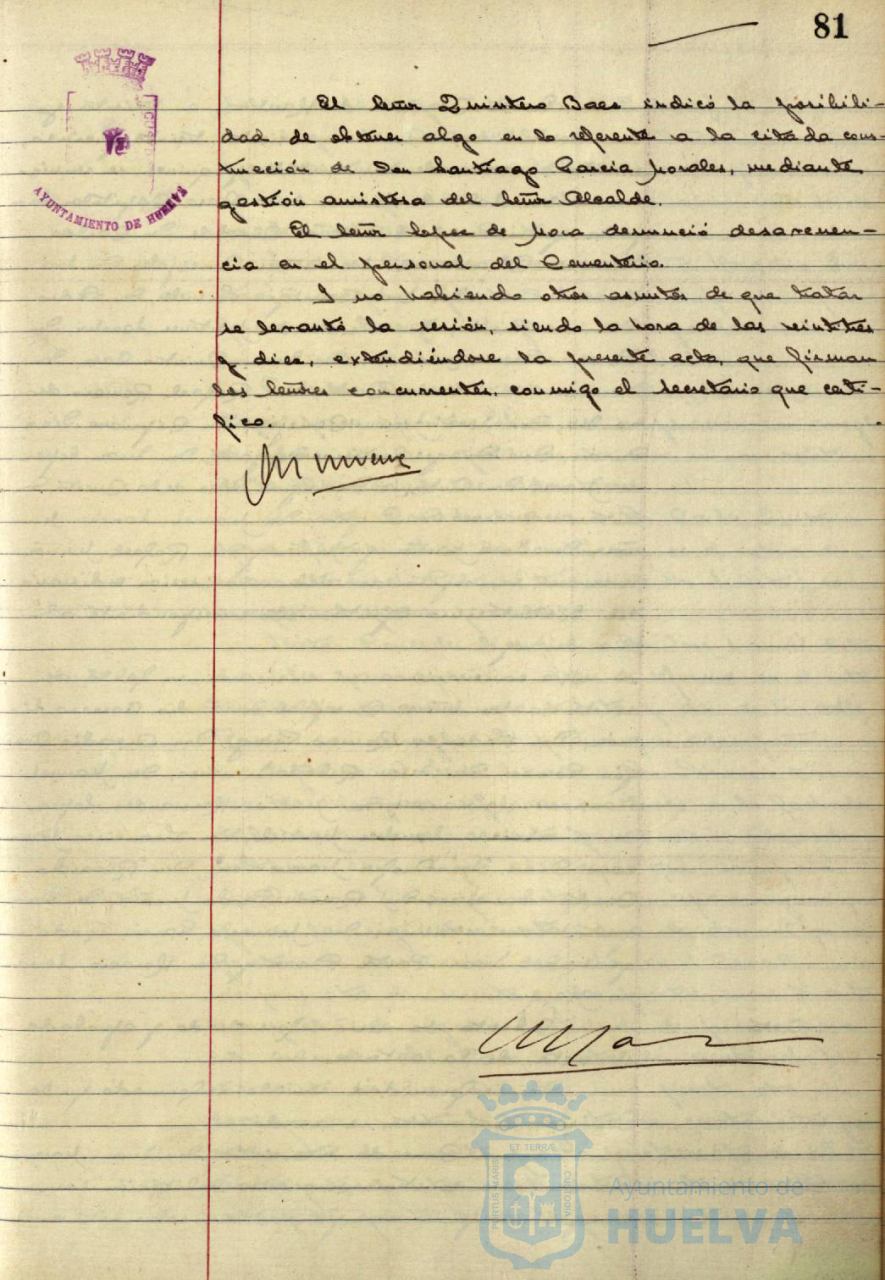 81
AYUNTAMIENTO DE HUELVA
El señor Quintero Baes indicó la posibili-
dad de obtener algo en lo referente a la citada cons-
trucción de Don Santiago Garcia Morales, mediante
gestión amistosa del señor Alcalde.
El señor lopez de Mora denunció desavenen-
cia en el personal del Cementerio.
Y no habiendo otros asuntos de que tratar
se levantó la sesión, siendo la hora de las veintitres
y diez, extendiéndose la presente acta, que firman
los señores concurrentes, conmigo el secretario que certi-
fico.
ET TERRÆ
PORTUS MARIS
CUSTODIA
Ayuntamiento de
HUELVA